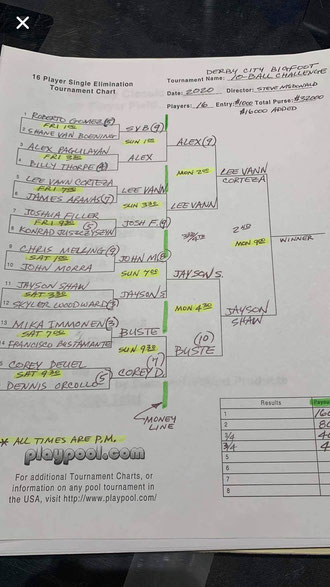 ×
DERBY CITY BIGFOOT
16 Player Single Elimination
Tournament Chart
Tournament Name: 10-BALL CHALLENGE
Date: 2020 Director: STEVE McDONALD
Players: 16 Entry: $1000 Total Purse: $32000
$16000 ADDED
1 ROBERTO GOMEZ
FRI 1:00
2 SHANE VAN BOENING
SVB (9)
SUN 1:00
3 ALEX PAGULAYAN
FRI 3:00
4 BILLY THORPE
ALEX
ALEX (9)
MON 2:00
5 LEE VANN CORTEZA
FRI 7:00
6 JAMES ARANAS (7)
LEE VANN
SUN 3:00
7 JOSHUA FILLER
FRI 9:00
8 KONRAD JUSZCZYSZYN (5)
JOSH F. (9)
LEE VANN
LEE VANN
CORTEZA
2ND
MON 9:00
WINNER
9 CHRIS MELLING (9)
SAT 1:00
10 JOHN MORRA
JOHN M (8)
SUN 7:00
11 JAYSON SHAW
SAT 3:00
12 SKYLER WOODWARD (3)
JAYSON S
JAYSON S.
MON 4:30
13 MIKA IMMONEN (3)
SAT 7:00
14 FRANCISCO BUSTAMANTE
BUSTE
SUN 9:00
COREY DEUEL
SAT 9:00
DENNIS ORCOLLO (5)
(7)
COREY D.
(10)
BUSTE
JAYSON
SHAW
MONEY
LINE
* ALL TIMES ARE P.M.
playpool.com
For additional Tournament Charts, or
information on any pool tournament in
the USA, visit http://www.playpool.com/
Results
1
2
3/4
3/4
5
6
7
8